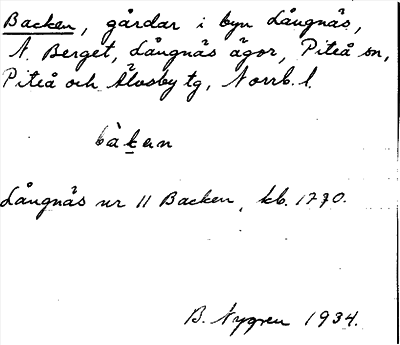 Backen, gårdar i byn Långnäs,
N. Berget, Långnäs ägor, Piteå sn,
Piteå och Älvsby tg, Norrb. l.
bàk̲en
Långnäs nr 11 Backen, kb. 1770.
B. Nygren 1934.